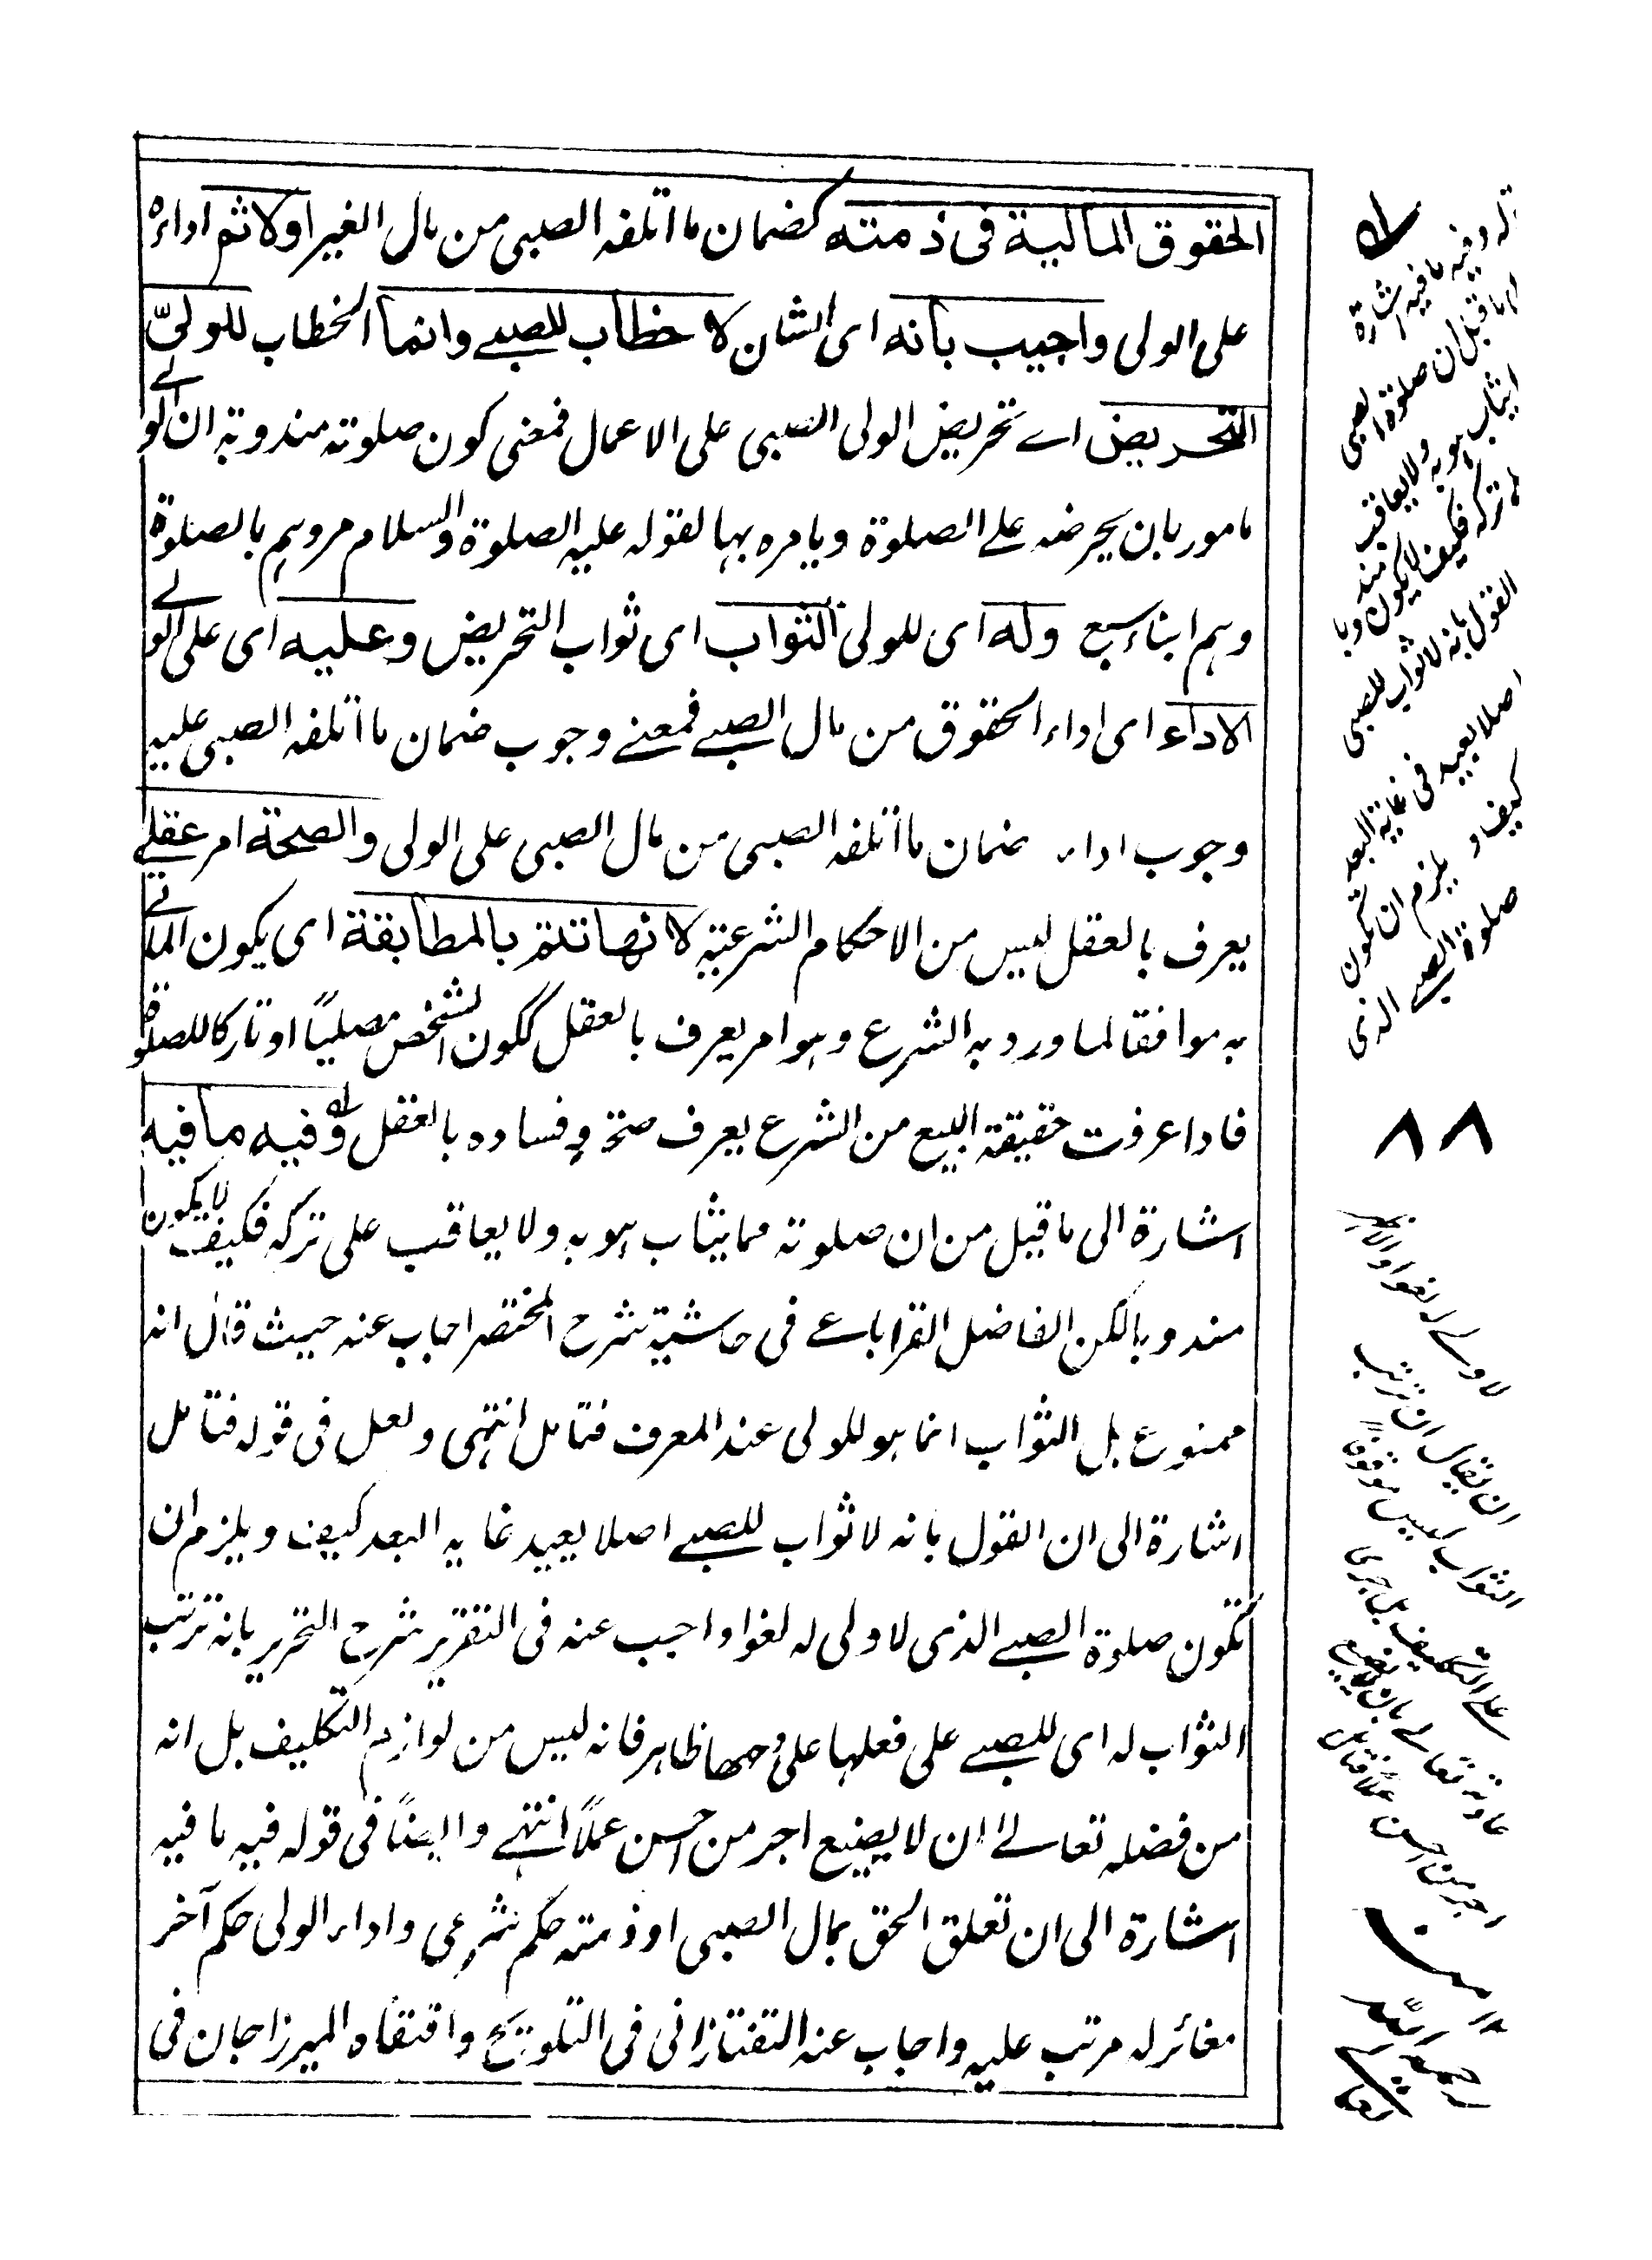 الحقوق المالية فى ذمته كضمان ما اتلفه الصبى من مال الغير اولا ثم اداءه
على الولى واجيب بانه اى الشان لا خطاب للصبے وانما الخطاب للولىّ
التحريض اے تحريض الولى الصبى على الاعمال فمعنى كون صلوته مندوبة ان الولے
مامور بان يحرضه علے الصلوة ويامره بها لقوله عليه الصلوة والسلام مروهم بالصلوة
وهم ابناء سبع وله اى للولى الثواب اى ثواب التحريض وعليه اى على الولے
الاداء اى اداء الحقوق من مال الصبے فمعنے وجوب ضمان ما اتلفه الصبى عليه
وجوب اداء ضمان ما اتلفه الصبى من مال الصبى على الولى والصحة امر عقلے
يعرف بالعقل ليس من الاحكام الشرعية لانها تتم بالمطابقة اى يكون الماتے
به موافقا لما ورد به الشرع وهو امر يعرف بالعقل ككون الشخص مصلياً او تاركا للصلوة
فاذا عرفت حقيقة البيع من الشرع يعرف صحته وفساده بالعقل وفيه مافيه
اشارة الى ما قيل من ان صلوته مما يثاب هو به ولا يعاقب على تركه فكيف لا يكون
مندوبا لكن الفاضل القراباغے فى حاشية شرح المختصر اجاب عنه حيث قال انه
ممنوع بل الثواب انما هو للولى عند المعرف فتامل انتهى ولعل فى قوله فتامل
اشارة الى ان القول بانه لا ثواب للصبے اصلا بعيد غاية البعد كيف ويلزم ان
تكون صلوة الصبے الذى لا ولى له لغوا واجيب عنه فى التقرير شرح التحرير بانه ترتب
الثواب له اى للصبے على فعلها على وجهها ظاهر فانه ليس من لوازم التكليف بل انه
من فضله تعالےٰ ان لا يضيع اجر من احسن عملاً انتهے وايضاً فى قوله فيه ما فيه
اشارة الى ان تعلق الحق بمال الصبى او ذمته حكم شرعى واداء الولى حكم آخر
مغائر له مرتب عليه واجاب عنه التفتازانى فى التلويح واقتفاه الميرزاجان فى
قوله وفيه ما فيه اشارة
ما قيل ان صلوة الصبى
يثاب هو به ولا يعاقب
تركه فكيف لا يكون مند
وبا
القول بانه لا ثواب للصبى
اصلا بعيد فى غاية البعد
كيف و يلزم ان تكون
صلوة الصبے الذى
٨٨
لا ولے له لغوا
ان يقال ان ترتب
الثواب ليس موقوفاً
علے التكليف بل جرى
عادته تعالے بان لا يضيع
اجر من احسن عملاً فتامل
رحمه الله
تعالے